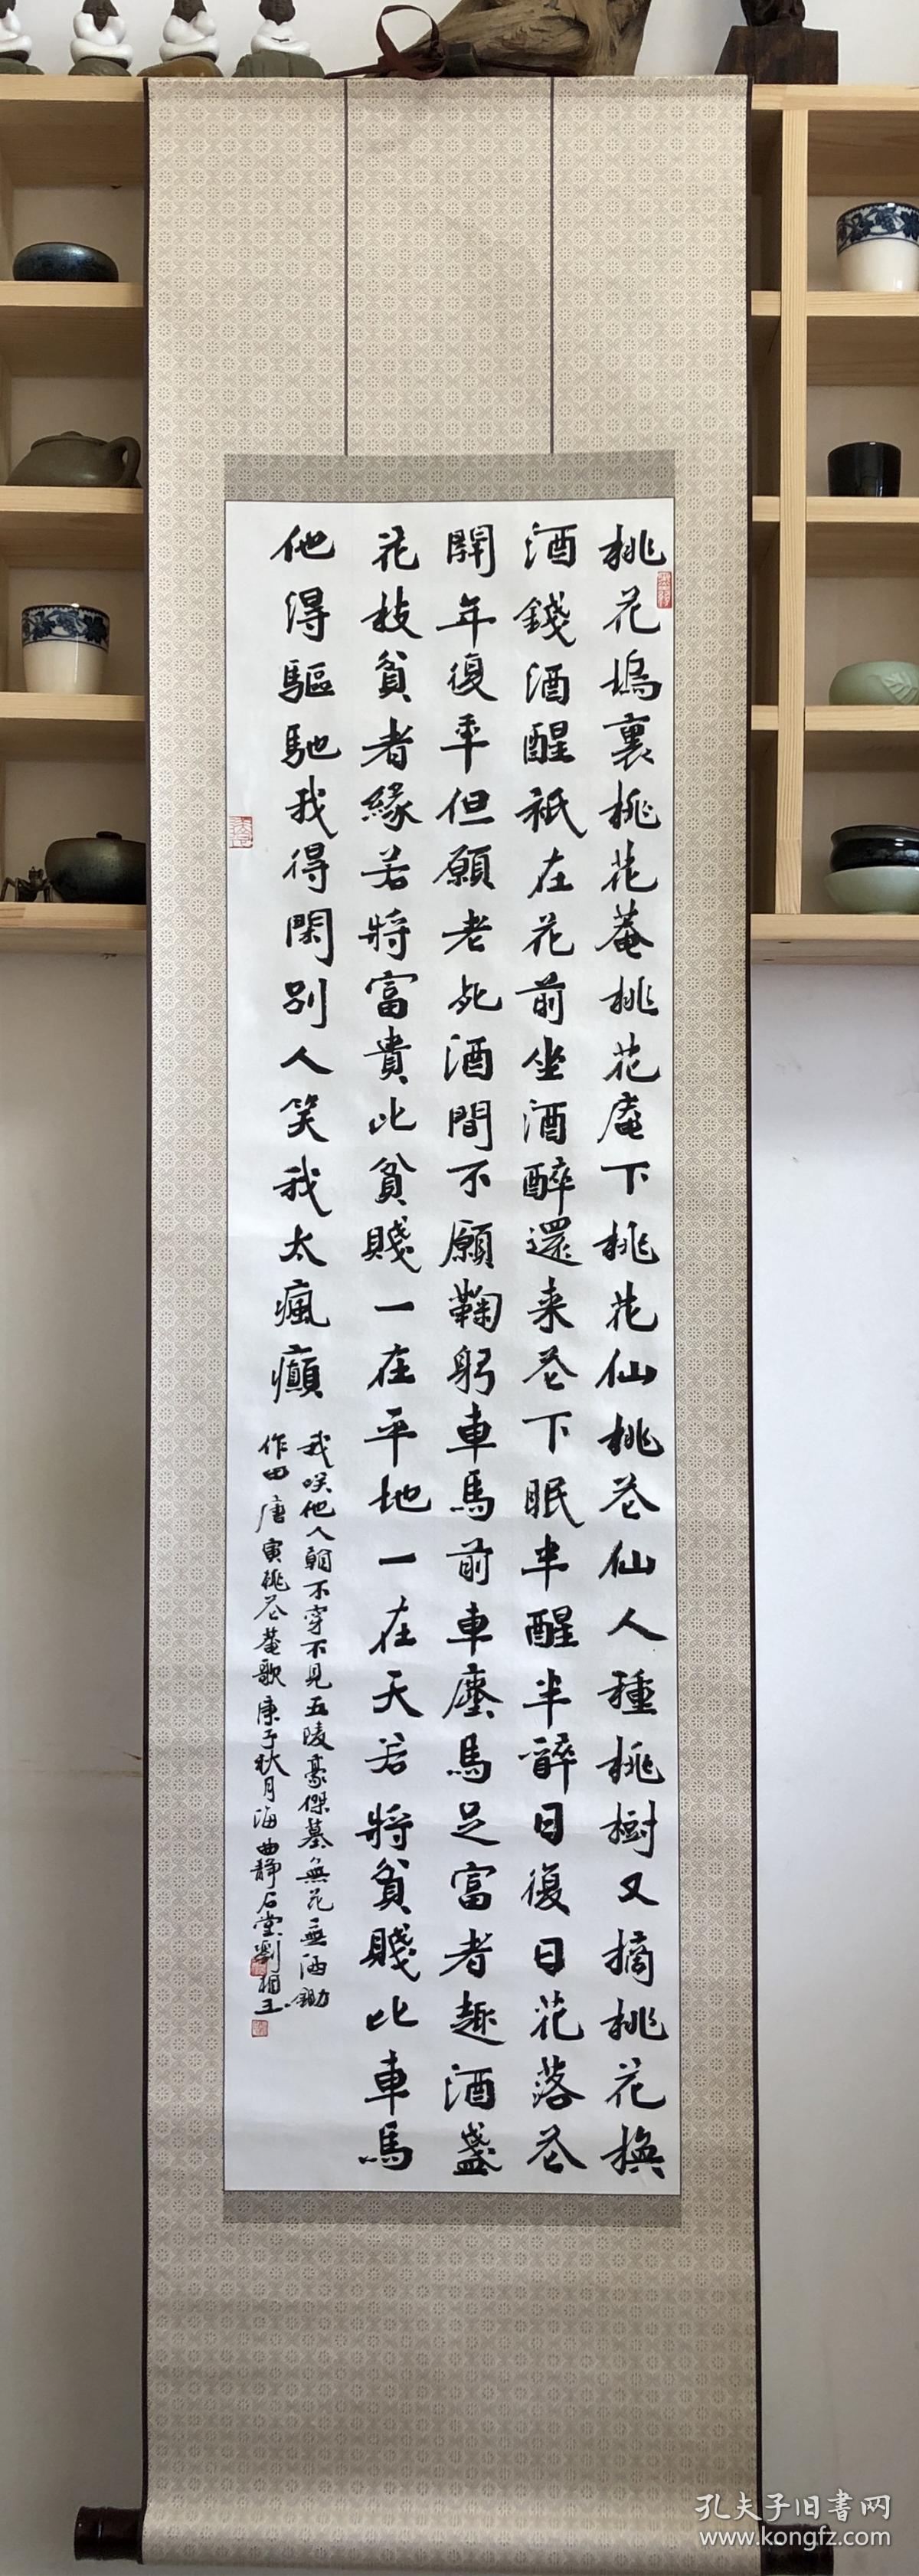 桃花塢裏桃花菴桃花庵下桃花仙桃花仙人種桃樹又摘桃花換
酒錢酒醒祇在花前坐酒醉還来花下眠半醒半醉日復日花落花
開年復年但願老死酒間不願鞠躬車馬前車塵馬足富者趣酒盞
花枝貧者緣若將富貴比貧賤一在平地一在天若將貧賤比車馬
他得驅馳我得閑別人笑我太瘋癲
我咲他人看不穿不見五陵豪傑墓無花無酒鋤
作田 唐寅桃花菴歌庚子秋月海曲静石堂劉相玉
孔夫子旧書网
www.kongfz.com